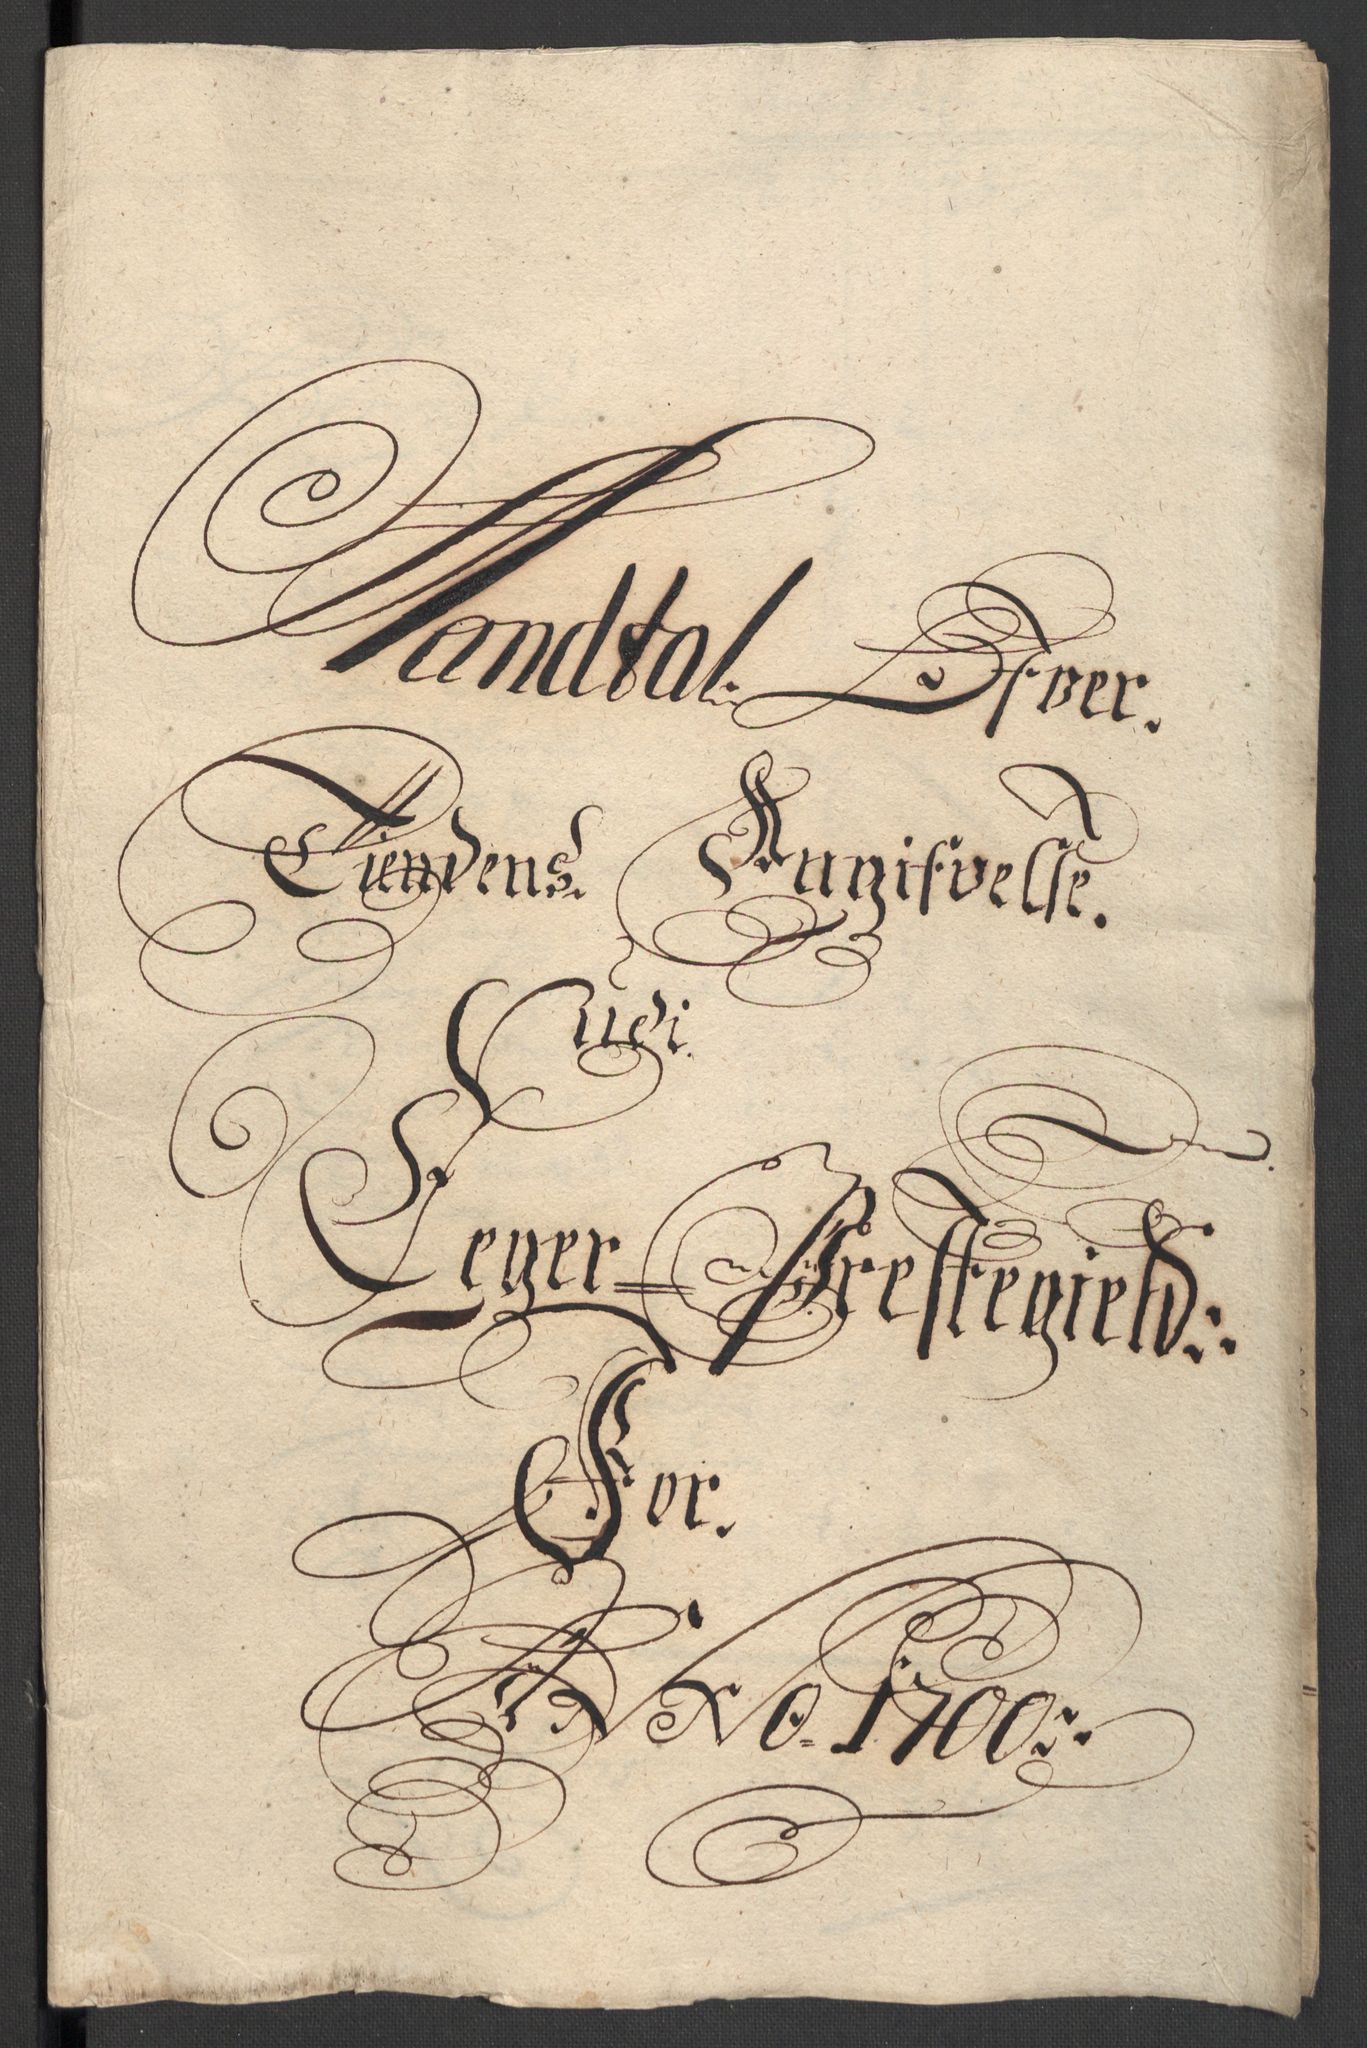 Mandtal. Ofver.
Tiendens Angifvelse.
Udi.
Leger Prestegield:
For.
ANNO. 1700: